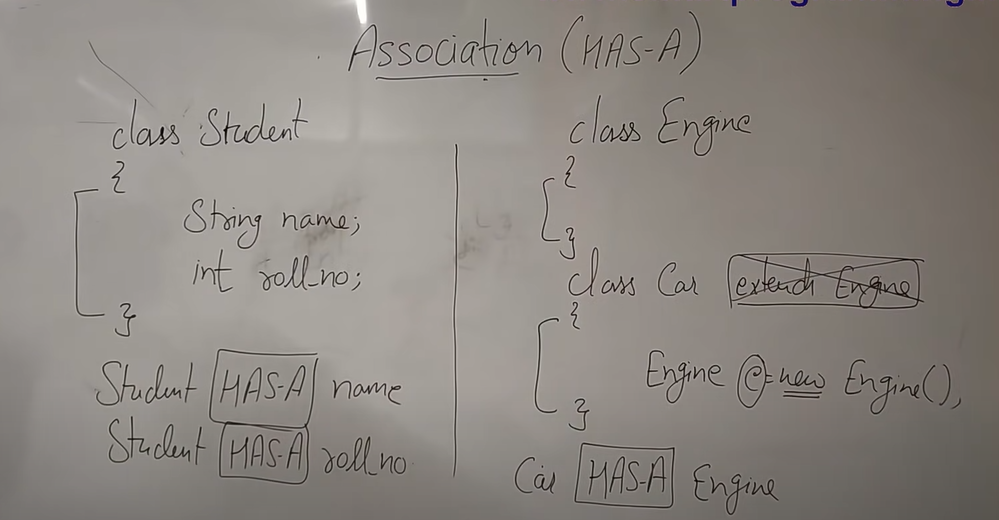 Association (HAS-A)
class Student
{
String name;
int roll_no;
}
Student HAS-A name
Student HAS-A roll_no
class Engine
{
}
class Car extends Engine
{
Engine e = new Engine();
}
Car HAS-A Engine